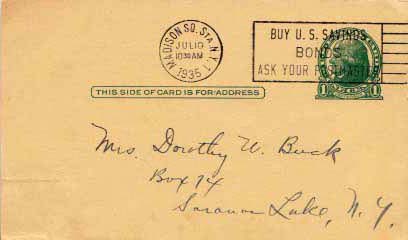 MADISON SQ. STA. N.Y.
JUL 10
10 30 AM
1935
BUY U.S. SAVINGS
BONDS
ASK YOUR POSTMASTER
THIS SIDE OF CARD IS FOR ADDRESS
1 1
Mrs. Dorothy W. Buck
Box 74
Saranac Lake, N.Y.